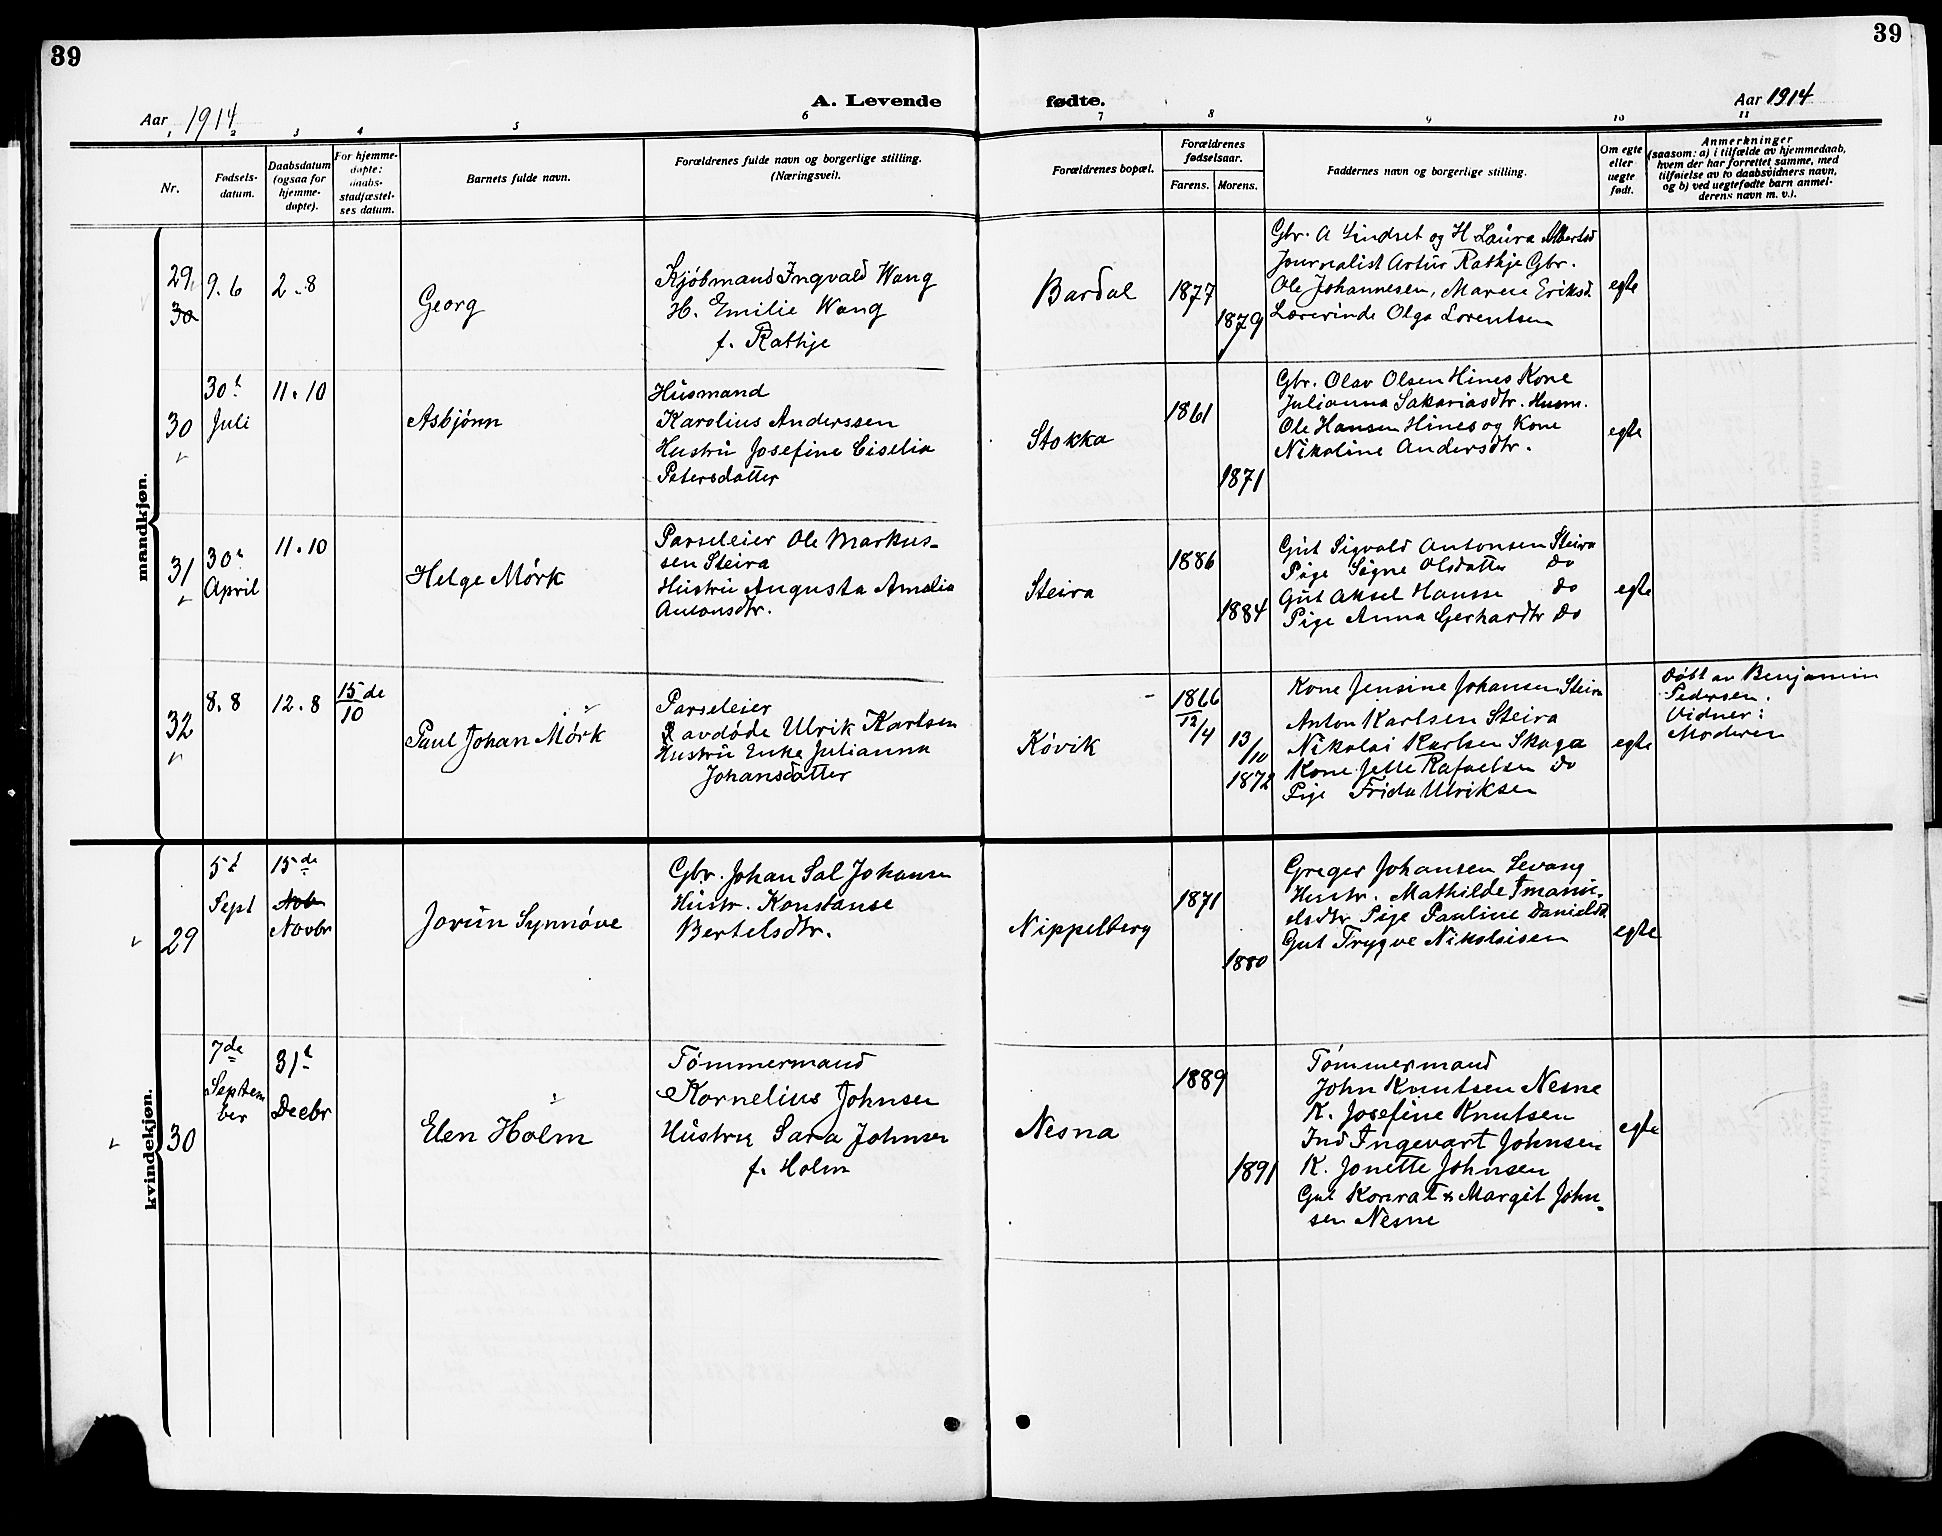 39
39
Aar 1914
A. Levende
fødte.
Aar 1914
1 2 3 4 5 6 7 8 9 10 11
Nr.
Fødsels-
datum.
Daabsdatum
(ogsaa for
hjemme-
døpte).
For hjemme-
døpte:
daabs-
stadfæstel-
ses datum.
Barnets fulde navn.
Forældrenes fulde navn og borgerlige stilling.
(Næringsvei).
Forældrenes bopæl.
Forældrenes
fødselsaar.
Farens. Morens.
Faddernes navn og borgerlige stilling.
Om egte
eller
uegte
født.
Anmerkninger
(saasom: a) i tilfælde av hjemmedaab,
hvem der har forrettet samme, med
tilføielse av to daabsvidners navn,
og b) ved uegtefødte barn anmel-
derens navn m. v.).
mandkjøn.
29
30
9.6
2.8
Georg
Kjøbmand Ingvald Wang
H. Emilie Wang
f. Rathje
Bardal
1877
1879
Gbr. A Sindset og H Laura Albertsd
Journalist Artur Rathje Gbr.
Ole Johannesen, Maren Eriksd.
Lærerinde Olga Lorentsen
egte
30
30t
Juli
11.10
Asbjönn
Husmand
Karolius Anderssen
Hustru Josefine Ciselia
Petersdatter
Stokka
1861
1871
Gbr. Olav Olsen Hines Kone
Julianna Sakariasdtr. Husm.
Ole Hansen Hines og Kone
Nikoline Andersdtr.
egte
31
30t
April
11.10
Helge Mörk
Parseleier Ole Markus-
sen Steira
Hustru Augusta Amalia
Antonsdtr.
Steira
1886
1884
Gut Sigvald Antonsen Steira
Pige Signe Olsdatter do
Gut Aksel Hansse do
Pige Anna Gerhardtr do
egte
32
8.8
12.8
15de
10
Paul Johan Mörk
Parseleier
avdöde Ulrik Karlsen
Hustru Enke Julianna
Johansdatter
Kövik
1866
12/4
13/10
1872
Kone Jensine Johansen Steira
Anton Karlsen Steira
Nikolai Karlsen Skaga
Kone Jette Rafaelsen do
Pige Frida Ulriksen
egte
Döbt av Benjamin
Pedersen.
Vidner:
Moderen
kvindekjøn.
29
5t
Sept
15de
Nob
Novbr
Jorun Synnöve
Gbr. Johan Sal Johansen
Hustr. Konstanse
Bertelsdtr.
Nippelberg
1871
1880
Greger Johansen Sevang
Hustr. Mathilde Imanu-
elsdtr Pige Pauline Danielsd.
Gut Trygve Nikolaisen
egte
30
7de
Septem
ber
31t
Decbr
Elen Holm
Tömmermand
Kornelius Johnsen
Hustru Sara Johnsen
f. Holm
Nesna
1889
1891
Tömmermand
John Knutsen Nesne
K. Josefine Knutsen
Ind Ingevart Johnsen
K. Jonette Johnsen
Gut Konrat & Margit John-
sen Nesne
egte